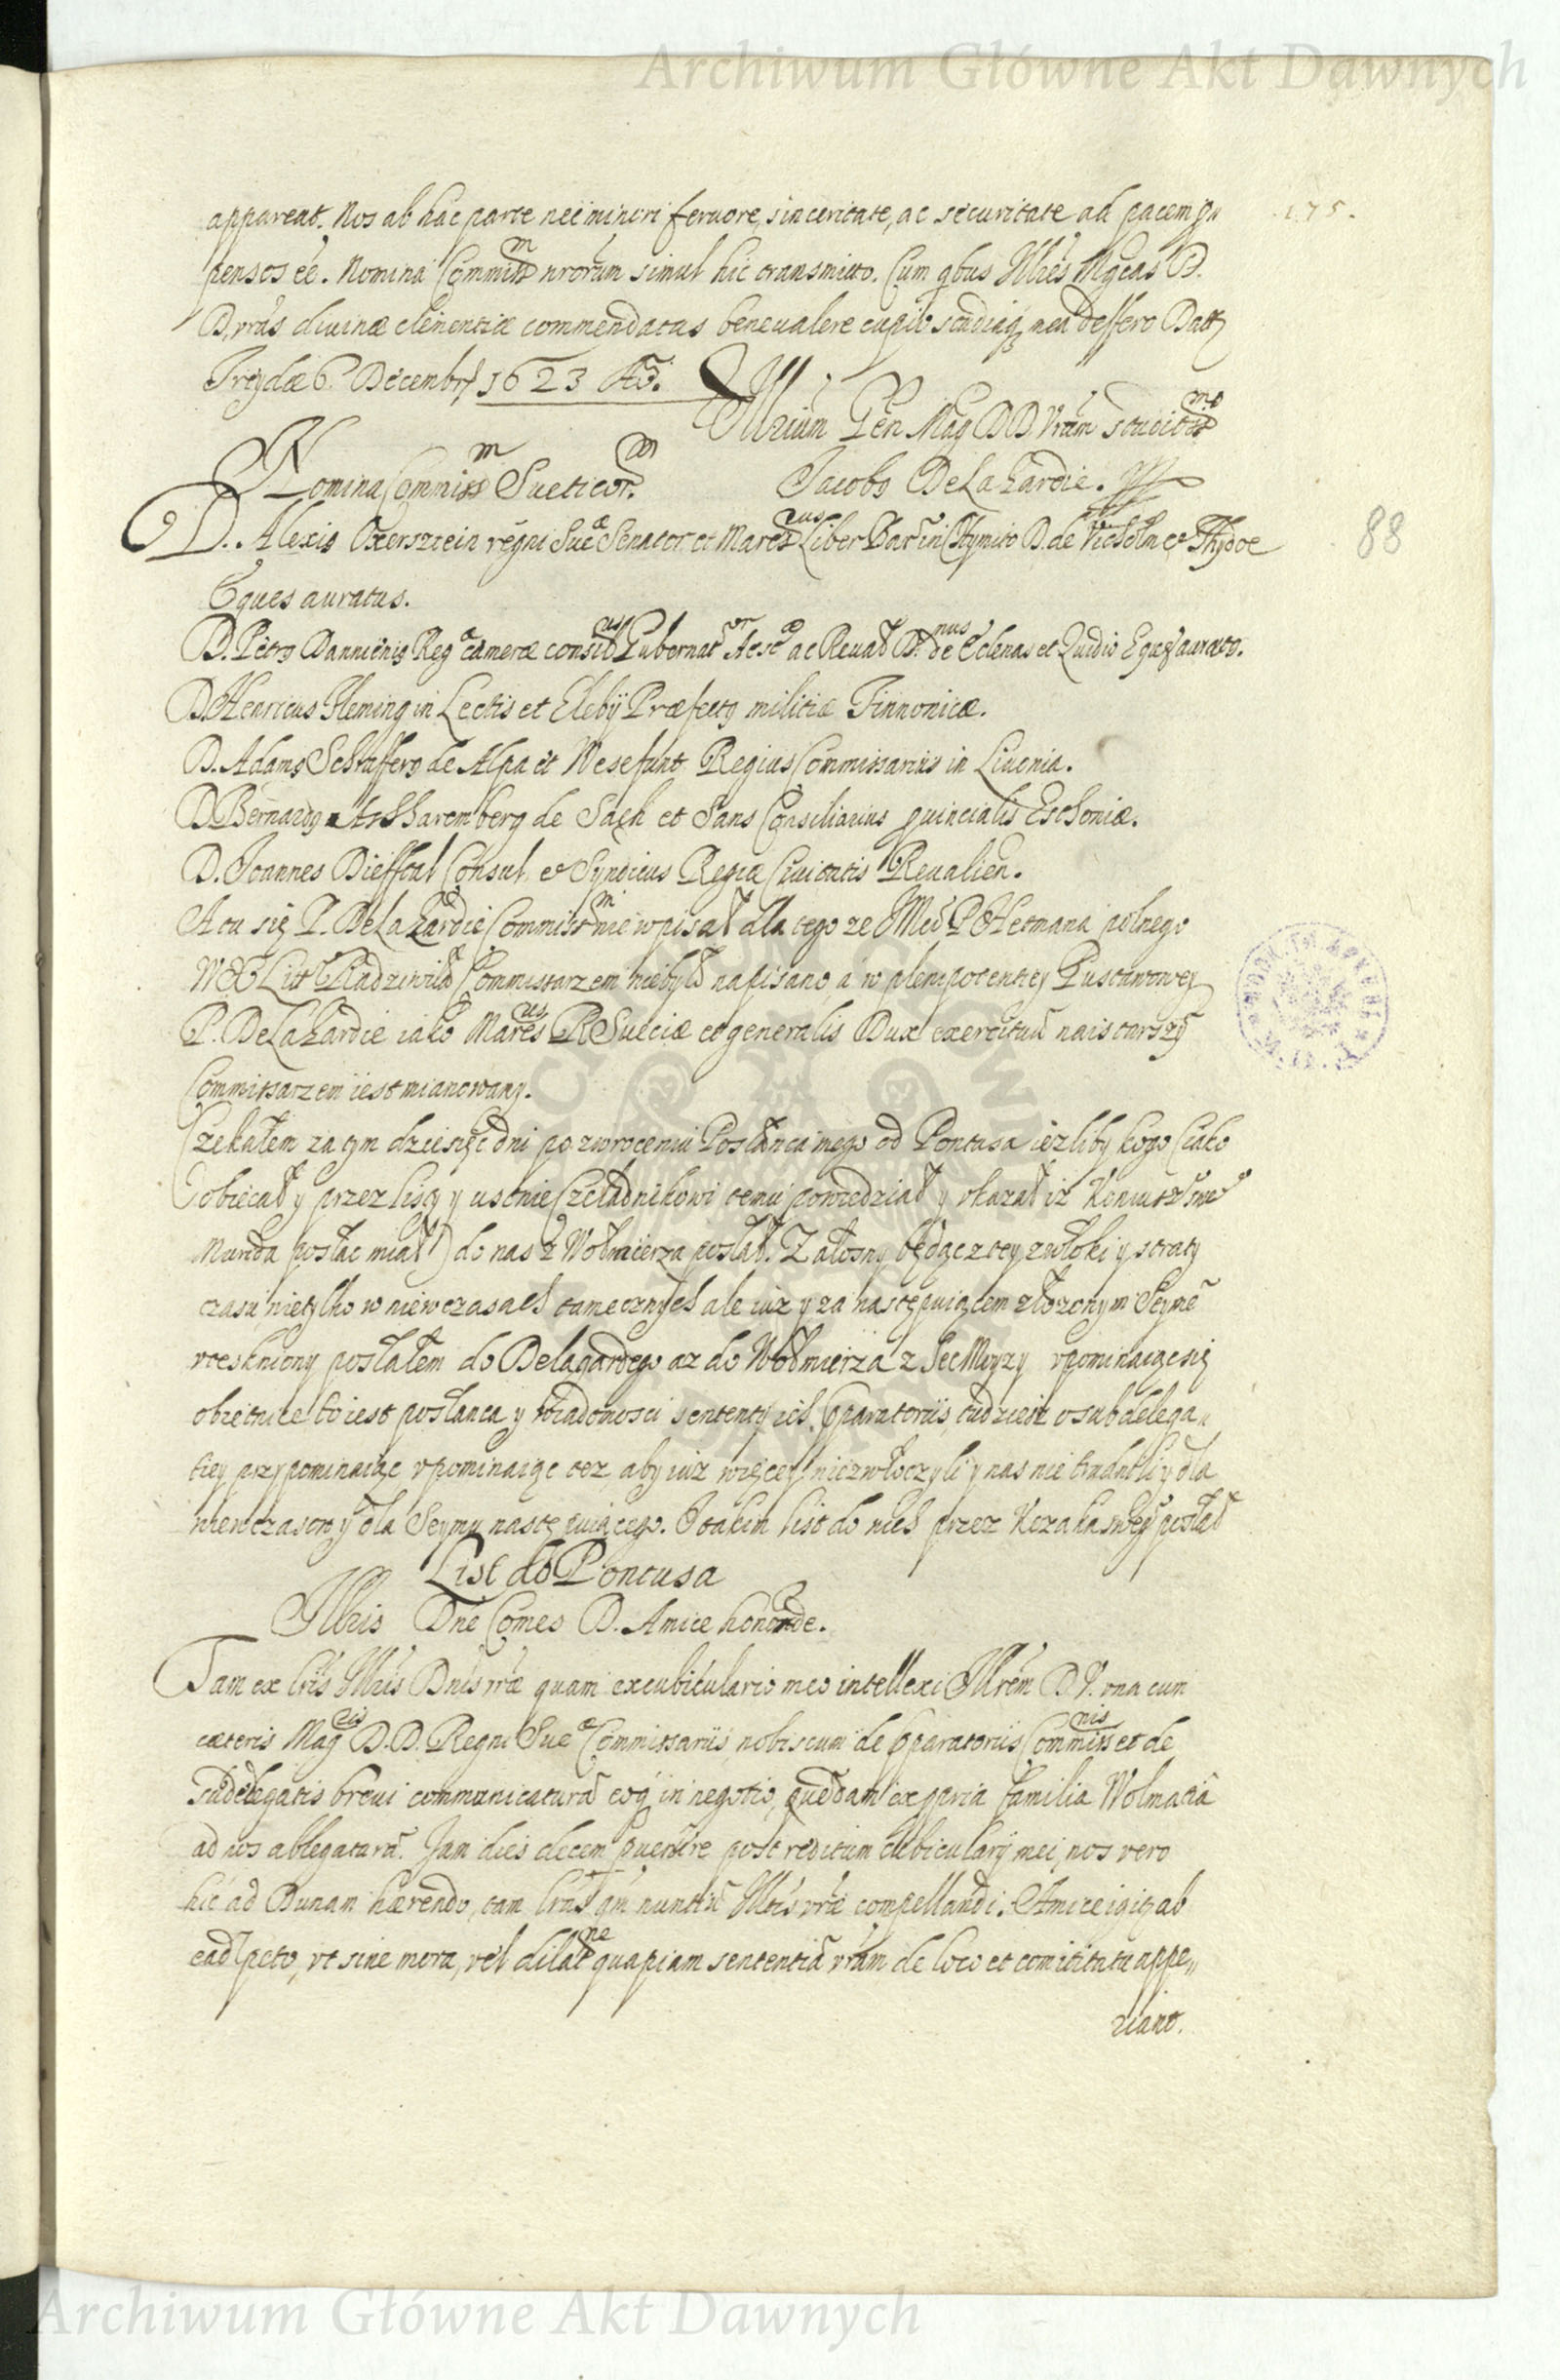 Archiwum Główne Akt Dawnych
appareat. Nos ab hac parte nei minori feruore, sinceritate, ac securitate ad pacem pn
pensos eē. Nomina Commiss m nrorum simul hic transmitto. Cum qbus Illres Mgcas D.
D. vras diuinæ clementiæ commendatas beneualere cupio studiaq mea deffero Datt
Treydæ 6. Decembr 1623 Aō.
Illrium Gen Mag DD. Vram studitiss mo
Nomina Commiss m Sueticor.
Jacobo De La Gardie.
175.
88
D. Alexis Oxersztein regni Sue æ Senator et Mares cus Liber Bar in Kymito D. de Vicholm et Thydoe
Eques auratus.
D. Petro Bannienis Reg æ cameræ consil us Gubernat or Aest æ ac Reual D. nus de Eclenas et Quidio Eques aurato.
D. Henricus Fleming in Lectis et Elebÿ Præfecto militiæ Finnonicæ.
D. Adams Schraffero de Alpa et Wesefunt Regius Commissarius in Liuonia.
D. Bernardo Scharemberg de Sack et Sans Consiliarius puincialis Esthoniæ.
D. Joannes Dieffout Consul et Syndicus Regiæ Ciuitatis Reualien.
A tu się P. De La Gardie Commiss m nie wpisał dla tego ze JMci P. Hetmana polnego
WX Litt Radziwiła Commissarzem niebyło napisano, a w plenipotentiey Gustawowey
P. De La Gardie iako Mares cus R. Sueciæ et generalis Dux exercituū naistarszȳ
Commissarzem iest mianowany.
Czekałem za tym dziesięc dni po zwroceniu Posłanca mego od Pontusa iezliby kogo (iako
obiecał y przez listy y ustnie Czeladnikowi temu powiedział y vkazał iz Koniuszē swe
Manda posłac miał) do nas z Wołmierza posłał. Załosny będąc z tey zwłoki y straty
czasu nietylko w niewczasach tamecznych ale iuz y za następuiącem złozonym Seymē
vteskniony posłałem do Delagardego az do Wołmierza z Sec Moyzy vpominaiąc się
obietnice to iest posłanca y wiadomosci sententy ich. pparatoriis, tudziesz o subdelega
tiey przypominaiąc vpominaiąc tez, aby iuz więcey niezwłoczyli y nas nie trudnili y dla
niewczasow y dla Seymu następuiącego. I takim list do nich przez Kozaka swego posłał
List do Pontusa
Illris Dne Comes D. Amice honornde.
Tam ex lris Illris Dnis vræ quam ex cubiculario meo intellexi Illrem D. V. vna cum
cæteris Mag cis D. D. Regni Sue æ Commissariis nobiscum de pparatoriis Commiss nis et de
subdelegatis breui communicaturā eoq in negotio, quēdam ex ppria familia Wolmariā
ad nos ablegaturā. Jam dies decem puenire post reditum cubicularÿ mei, nos vero
hic ad Dunam hærendo, tam lras qm nuntiū Illris vræ compellandi. Amice igitr ab
ead peto, vt sine mora, vel dilat ne quapiam sententiā vram de loco et comititatu appe„
riant.
Archiwum Główne Akt Dawnych